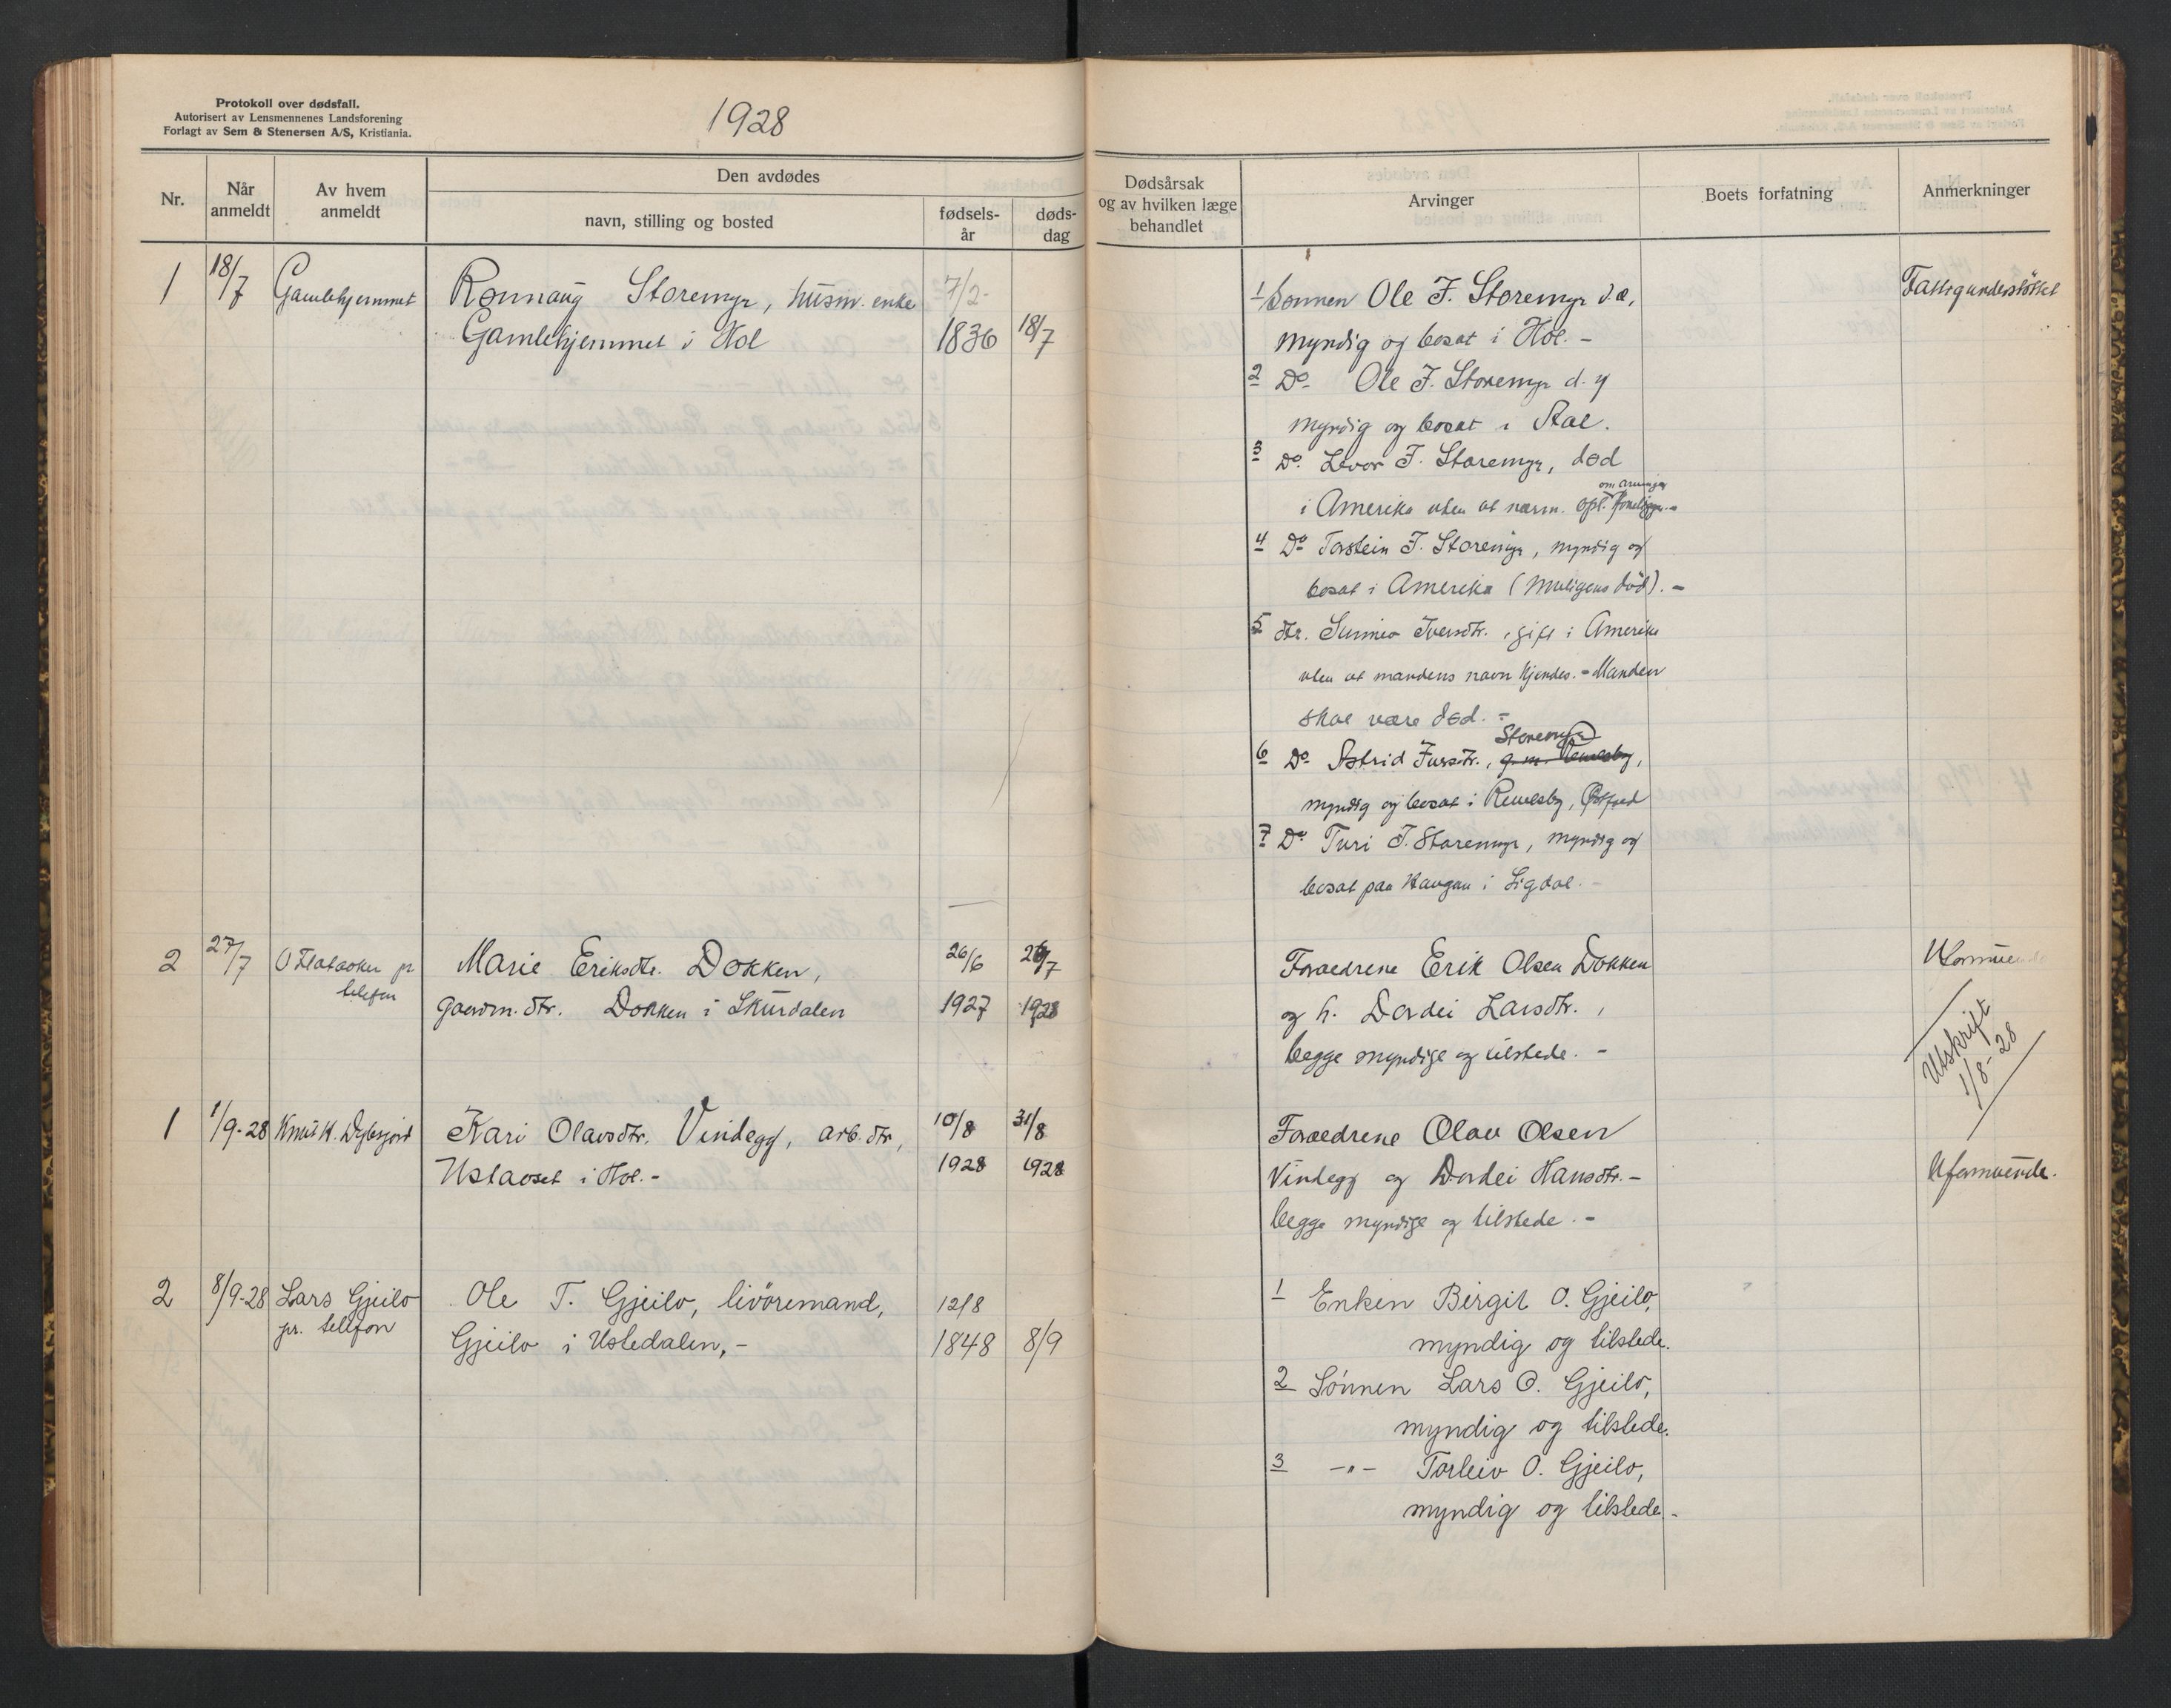 Protokoll over dødsfall.
Autorisert av Lensmennenes Landsforening
Forlagt av Sem & Stenersen A/S, Kristiania.
1928
Nr.
Når anmeldt
Av hvem anmeldt
Den avdødes
navn, stilling og bosted
fødsels-år
døds-dag
Dødsårsak og av hvilken læge behandlet
Arvinger
Boets forfatning
Anmerkninger
1 18/7 Gamlehjemmet Rønnaug Storemyr, husm. enke 7/2-
Gamlehjemmet i Hol 1836 18/7
1 Sønnen Ole I. Storemyr d.æ. Fattigunderstøttet
myndig og bosat i Hol. -
2 Do- Ole I. Storemyr d. y
myndig og bosat i Aal.
3 Do. Levor I. Storemyr, død
om arvinger
i Amerika uten at nærm. opl. foreligger.-
4 Do Torstein I. Storemyr, myndig og
bosat i Amerika (muligens død). -
5 dtr. Iversdtr., gift i Amerika
uten at mandens navn kjendes. - Manden
skal være død. -
Storemyr
6 Do Astrid Iversdtr., g. m.
myndig og bosat i
7 Do Turi I. Storemyr, myndig og
bosat paa Haugan i Sigdal. -
2 27/7 pr telefon Marie Eriksdtr. Dokken, 26/6 26/7
gaardm. dtr. Dokken i Skurdalen 1927 1928
Foraedrene Erik Olsen Dokken Uformuende
og h. Dordei Larsdtr.,
begge myndige og tilstede. -
Utskrift
1/8-28
1 1/9-28 Knut K. Dybsjord Kari Olavsdtr. Vindegg, arb. dtr, 10/8 31/8
Ustaoset i Hol. - 1928 1928
Foraedrene Olav Olsen
Vindegg og Dordei Hansdtr. - Uformuende.
begge myndige og tilstede. -
2 8/9-28 Lars Gjeilo Ole T. Gjeilo, livöremand, 12/8
pr. telefon Gjeilo i Ustedalen, - 1848 8/9
1 Enken Birgit O. Gjeilo,
myndig og tilstede.
2 Sönnen Lars O. Gjeilo,
myndig og tilstede.
3 -"- Torleiv O. Gjeilo,
myndig og tilstede -